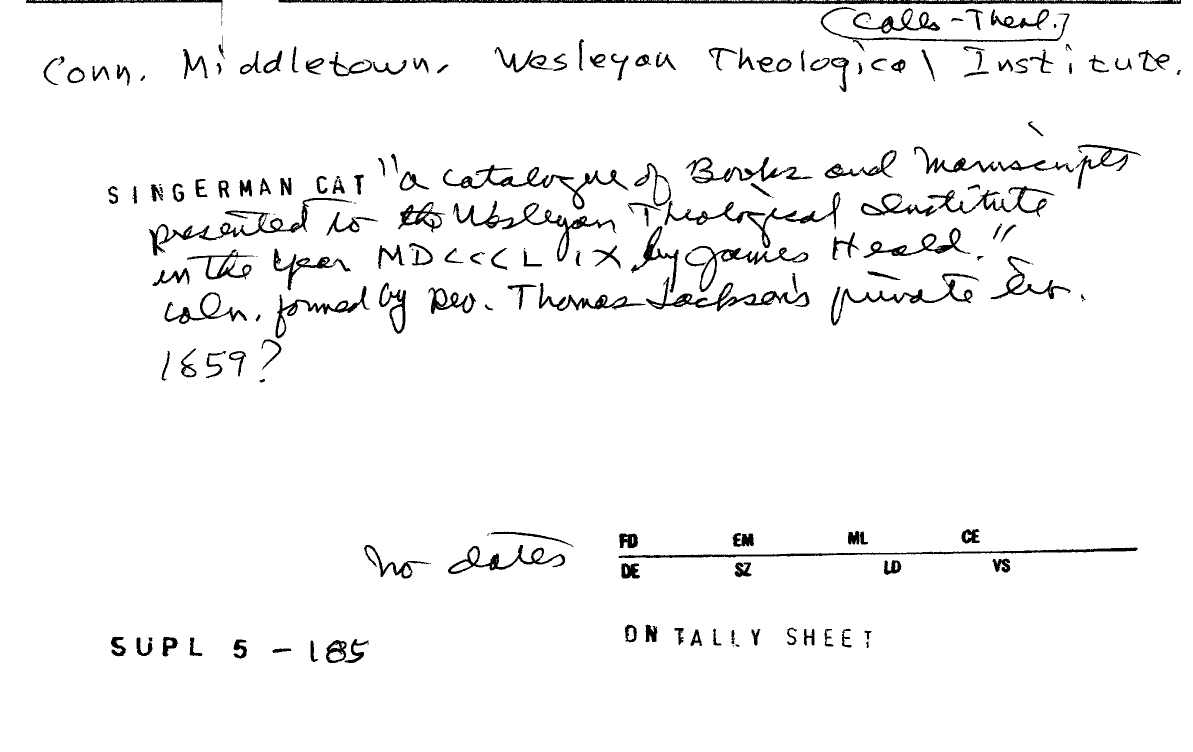 (Colls-Theol.)
Conn. Middletown. Wesleyan Theological Institute.
SINGERMAN CAT "a catalogue of Books and Manuscripts
presented to the Wesleyan Theological Institute
in the year MDCCCLIX by James Heald."
coln. formed by Rev. Thomas Jackson's private lib.
1859?
no dates
FD EM ML CE
DE SZ LD VS
SUPL 5 - 185
ON TALLY SHEET